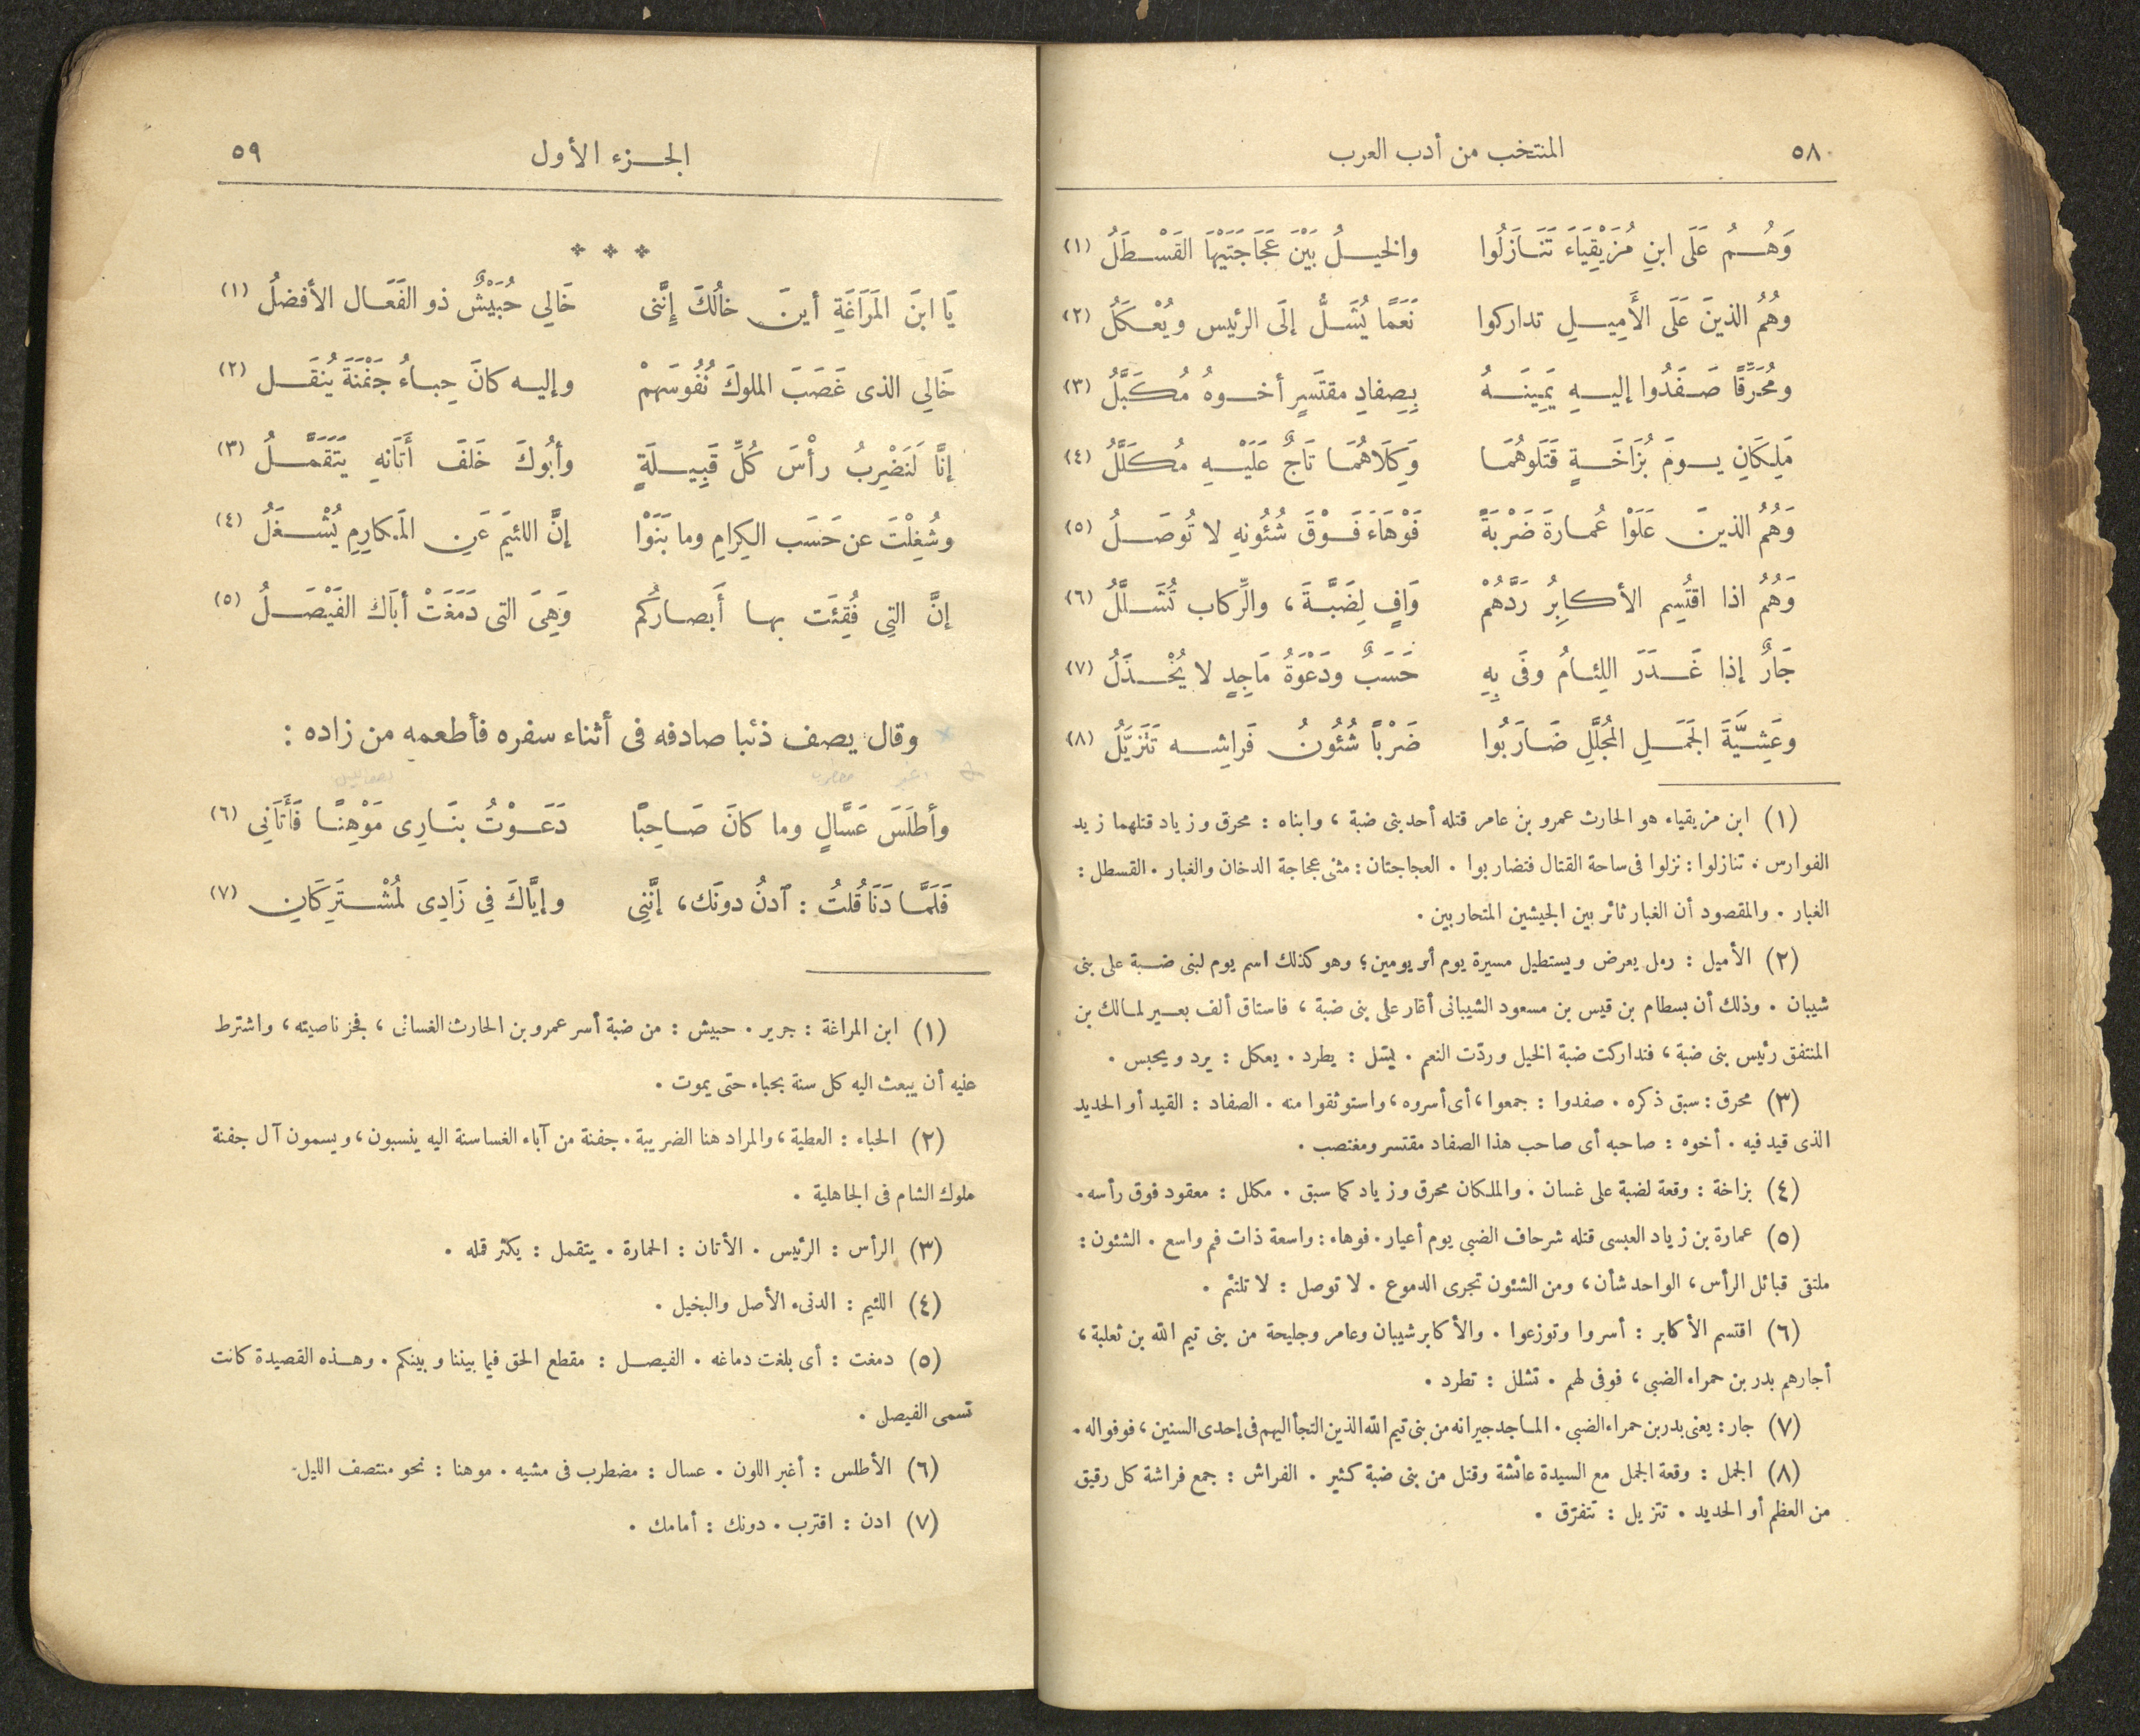 ٥٨
المنتخب من أدب العرب
وَهُمُ عَلَى ابنِ مُزَيْقِيَاءَ تَنَازَلُوا والخيلُ بَيْنَ عَجَاجَتَيْهَا القَسْطَلُ (١)
وهُمُ الذينَ عَلَى الأَمِيلِ تداركوا نَعَمًا يُشَلُّ إلَى الرئيس ويُعْكَلُ (٢)
ومُحَرِّقًا صَفَدُوا إليهِ يَمِينَهُ بِصِفادِ مقتَسِرٍ أخوهُ مُكَبَّلُ (٣)
مَلِكَانِ يومَ بُزَاخَةٍ قَتَلوهُمَا وَكِلَاهُمَا تَاجٌ عَلَيْهِ مُكَلَّلُ (٤)
وَهُمُ الذينَ عَلَوْا عُمارةَ ضَرْبَةً فَوْهَاءَ فَوْقَ شُئُونهِ لا تُوصَلُ (٥)
وَهُمُ اذا اقتُسِم الأكابِرُ رَدَّهُمْ وَافٍ لِضَبَّةَ ، والرِّكاب تُشَلَّلُ (٦)
جَارٌ إذا غَدَرَ اللِئامُ وفَى بِهِ حَسَبٌ ودَعْوَةُ مَاجِدٍ لا يُخْذَلُ (٧)
وعَشِيَّةَ الجَمَلِ المُجلَّلِ ضَارَبُوا ضَرْباً شُئُونُ فَراشِه تَتَزيَّلُ (٨)
(١) ابن مزيقياء هو الحارث عمرو بن عامر قتله أحد بنى ضبة ، وابناه : محرق وزياد قتلهما زيد
الفوارس . تنازلوا : نزلوا فى ساحة القتال فتضاربوا . العجاجتان : مثنى عجاجة الدخان والغبار . القسطل :
الغبار . والمقصود أن الغبار ثائر بين الجيشين المتحاربين .
(٢) الأميل : رمل يعرض ويستطيل مسيرة يوم أو يومين؛ وهو كذلك اسم يوم لبنى ضبة على بنى
شيبان . وذلك أن بسطام بن قيس بن مسعود الشيبانى أغار على بنى ضبة ، فاستاق ألف بعير لمالك بن
المنتفق رئيس بنى ضبة ، فتداركت ضبة الخيل وردّت النعم . يشل : يطرد . يعكل : يرد ويحبس .
(٣) محرق : سبق ذكره . صفدوا : جمعوا، أى أسروه، واستوثقوا منه . الصفاد : القيد أو الحديد
الذى قيد فيه . أخوه : صاحبه أى صاحب هذا الصفاد مقتسر ومغتصب .
(٤) بزاخة : وقعة لضبة على غسان . والملكان محرق وزياد كما سبق . مكلل : معقود فوق رأسه .
(٥) عمارة بن زياد العبسى قتله شرحاف الضبى يوم أعيار . فوهاء : واسعة ذات فم واسع . الشئون :
ملتقى قبائل الرأس ، الواحد شأن ، ومن الشئون تجرى الدموع . لا توصل : لا تلتئم .
(٦) اقتسم الأكابر : أسروا وتوزعوا . والأكابر شيبان وعامر وجليحة من بنى تيم الله بن ثعلبة ،
أجارهم بدر بن حمراء الضبى ، فوفى لهم . تشلل : تطرد .
(٧) جار : يعنى بدر بن حمراء الضبى . الماجد جيرانه من بنى تيم الله الذين التجأ اليهم فى إحدى السنين ، فوفوا له .
(٨) الجمل : وقعة الجمل مع السيدة عائشة وقتل من بنى ضبة كثير . الفراش : جمع فراشة كل رقيق
من العظم أو الحديد . تتزيل : تتفرّق .
الجزء الأول
٥٩
يَا ابنَ المَرَاغَةِ أينَ خالُكَ إِنَّنى خَالِي حُبَيْشٌ ذو الفَعَال الأفضلُ (١)
خَالِي الذى غَصَبَ الملوكَ نُفُوسَهمْ وإليه كانَ حِباءُ جَفْنَةَ يُنقَل (٢)
إنَّا لَنَضْرِبُ رأْسَ كُلِّ قَبِيلَةٍ وأبُوكَ خَلفَ أَتَانهِ يَتَقَمَّلُ (٣)
وشُغِلْتَ عن حَسَب الكِرامِ وما بَنَوْا إنَّ اللئيمَ عَنِ المَكارِمِ يُشْغَلُ (٤)
إنَّ التِى فُقِئَت بها أَبصارُكُم وَهِىَ التى دَمَغَتْ أبَاكَ الفَيْصَلُ (٥)
وقال يصف ذئبا صادفه فى أثناء سفره فأطعمه من زاده :
وأطلَسَ عَسَّالٍ وما كانَ صَاحِبًا دَعَوْتُ بنَارِى مَوْهِنًا فَأَتَانِي (٦)
فَلَمَّا دَنَا قُلتُ : ٱدنُ دونَك، إنَّنِى وإيَّاكَ فِي زَادِى لمُشْتَرِكَانِ (٧)
(١) ابن المراغة : جرير . حبيش : من ضبة أسر عمرو بن الحارث الغسانى ، فجز ناصيته ، واشترط
عليه أن يبعث اليه كل سنة بحباء حتى يموت .
(٢) الحباء : العطية ، والمراد هنا الضريبة . جفنة من آباء الغساسنة اليه ينسبون ، ويسمون آل جفنة
ملوك الشام فى الجاهلية .
(٣) الرأس : الرئيس . الأتان : الحمارة . يتقمل : يكثر قمله .
(٤) اللئيم : الدنىء الأصل والبخيل .
(٥) دمغت : أى بلغت دماغه . الفيصل : مقطع الحق فيما بيننا وبينكم . وهذه القصيدة كانت
تسمى الفيصل .
(٦) الأطلس : أغبر اللون . عسال : مضطرب فى مشيه . موهنا : نحو منتصف الليل
(٧) ادن : اقترب . دونك : أمامك .